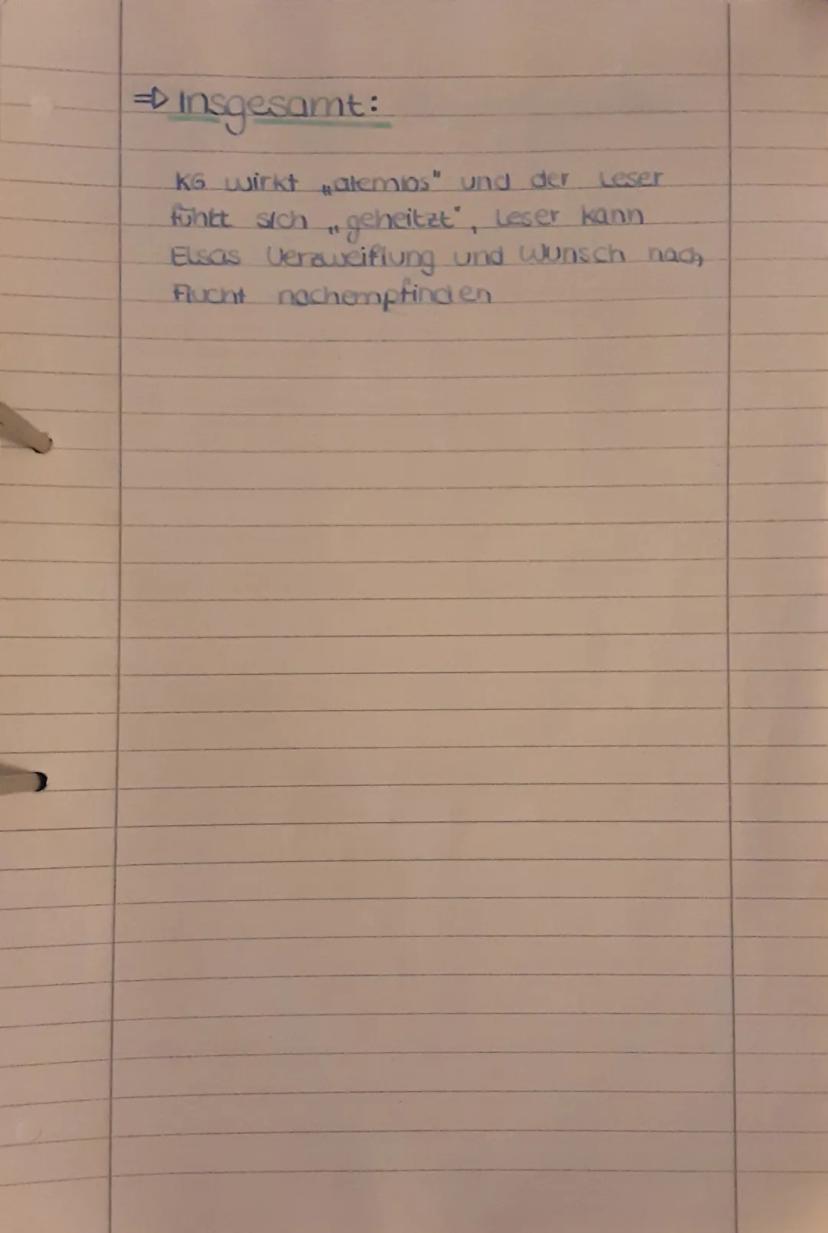 ⇒ Insgesamt:
KG wirkt „atemlos" und der Leser
fühlt sich „geheitzt", Leser kann
Elsas Verzweiflung und Wunsch nach
Flucht nachempfinden